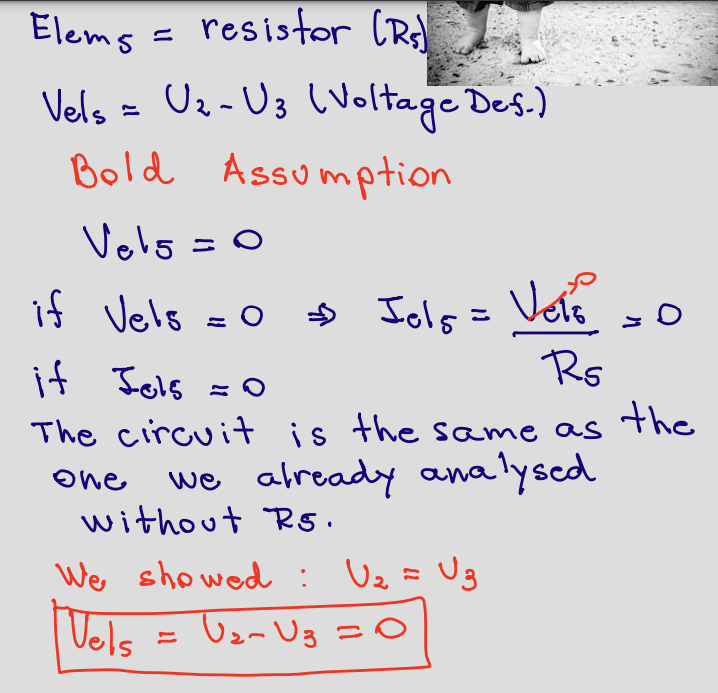 Elem5 = resistor (R5)
Vel5 = U2 - U3 (Voltage Def.)
Bold Assumption
Vel5 = 0
if Vel5 = 0 ⇒ Iel5 = Vel5 / R5 = 0
0
if Iel5 = 0
The circuit is the same as the
one we already analysed
without R5.
We showed : U2 = U3
Vel5 = U2 - U3 = 0